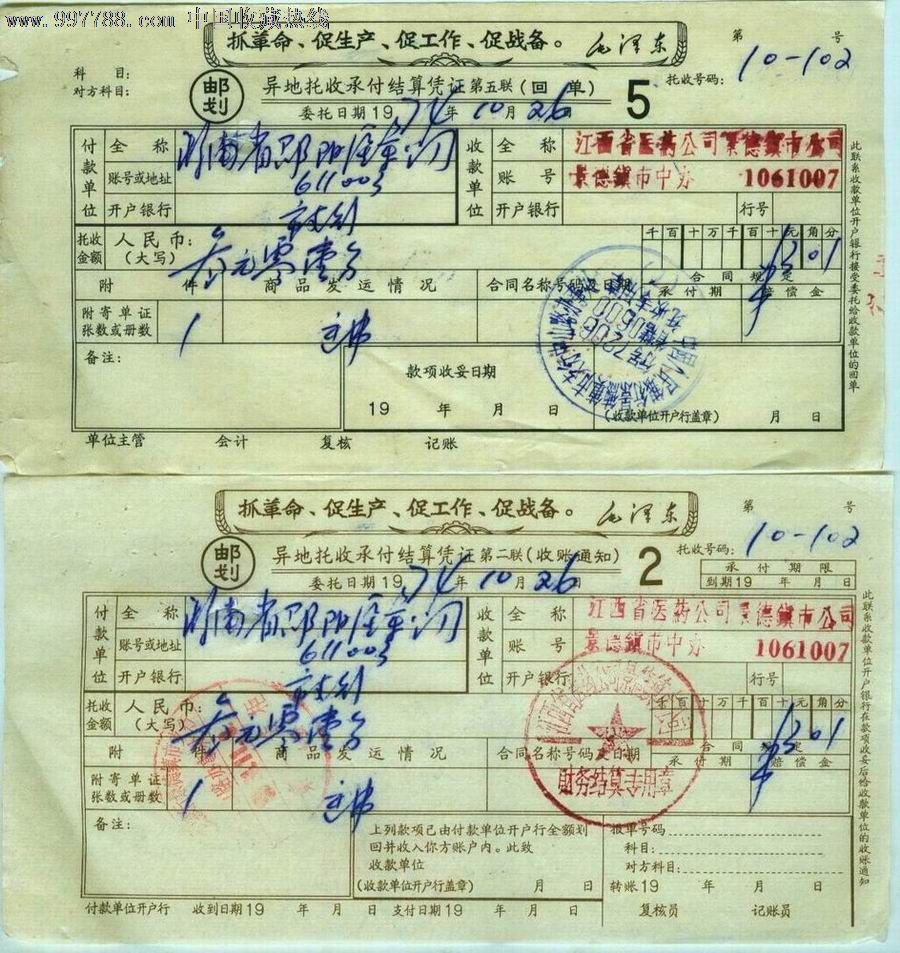 www.997788.com 中国收藏热线
抓革命、促生产、促工作、促战备。 毛泽东
第 号
科 目:
对方科目:
邮划
异地托收承付结算凭证 第五联 (回 单) 5
托收号码: 10-102
委托日期 1974年10月26日
付款单位 全 称 湖南省
收款单位 全 称 江西省医药公司景德鎮市公司
账号或地址 611003
账 号 景德鎮市中办 1061007
开户银行
开户银行 行号
托收金额 人民币: (大写) 叁元零壹分
千百十万千百十元角分
3 01
附 件 商品发运情况 合同名称号码及日期 合同规定
承付期 赔偿金
附寄单证张数或册数 1
备注:
款项收妥日期
19 年 月 日
(收款单位开户行盖章) 月 日
单位主管 会计 复核 记账
此联系收款单位开户银行接受委托给收款单位的回单
抓革命、促生产、促工作、促战备。 毛泽东
第 号
邮划
异地托收承付结算凭证 第二联 (收账通知) 2
托收号码: 10-102
委托日期 1974年10月26日
承付期限
到期19 年 月 日
付款单位 全 称 湖南省
收款单位 全 称 江西省医药公司景德鎮市公司
账号或地址 611003
账 号 景德鎮市中办 1061007
开户银行
开户银行 行号
托收金额 人民币: (大写) 叁元零壹分
千百十万千百十元角分
3 01
附 件 商品发运情况 合同名称号码及日期 合同规定
承付期 赔偿金
附寄单证张数或册数 1
财务结算专用章
备注:
上列款项已由付款单位开户行全额划
回并收入你方账户内。此致
收款单位
(收款单位开户行盖章) 月 日
报单号码
科目:
对方科目:
转账19 年 月 日
付款单位开户行 收到日期19 年 月 日 支付日期19 年 月 日
复核员 记账员
此联系收款单位开户银行在款项收妥后给收款单位的收账通知